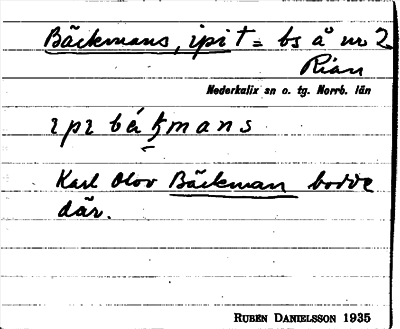 Bäckmans, ipi t = bs å nr 2
Rian
Nederkalix sn o. tg. Norrb. län
ipi bäkmans
Karl Olov Bäckman bodde
där.
RUBEN DANIELSSON 1935